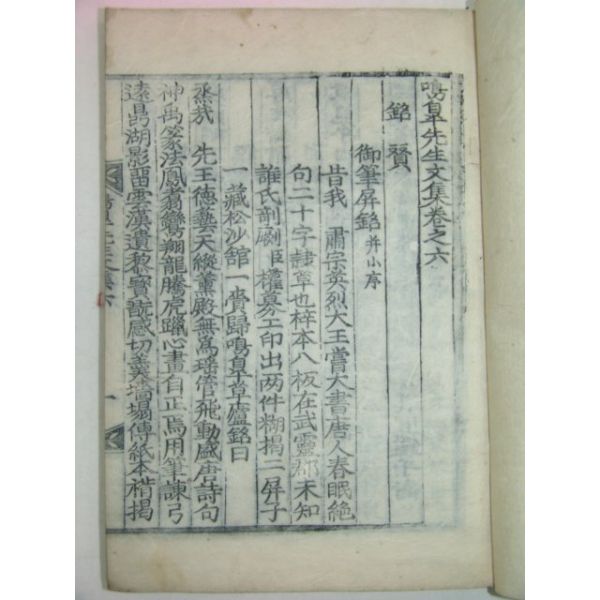 鳴皐先生文集卷之六
銘 贊
御筆屏銘 幷小序
昔我 肅宗英烈大王嘗大書唐人春眠絕
句二十字隷草也梓本八板在武靈郡未知
誰氏剞劂臣權募工印出两件糊揭二屏子
一藏松沙舘一賁歸鳴皐草廬銘曰
烝哉 先王德藝天縱薰殿無爲瑶管飛動盛唐詩句
神禹篆法鳳翥鸞翔龍騰虎躐心畫自正焉用筆諫弓
遠鼎湖影留雲漢遺黎寶翫感切羹墻塌傳紙本楷揭